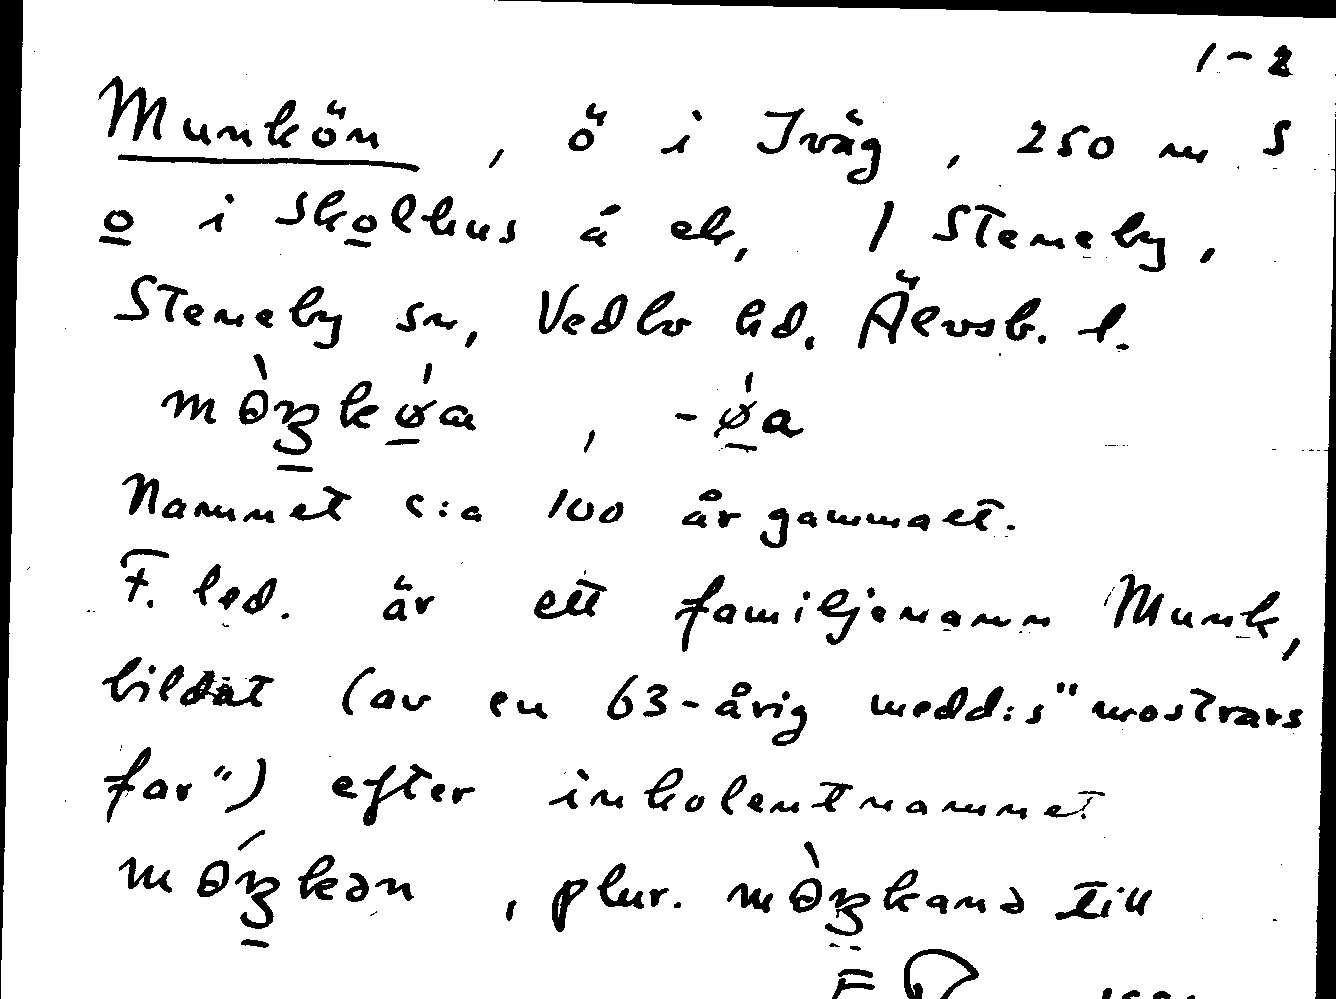 1-2
Munkön, ö i Iväg, 250 m S
o i Skolhus å ek, 1 Steneby,
Steneby sn, Vedbo hd. Älvsb. l.
Namnet c:a 100 år gammalt.
F. led. är ett familjenamn Munk,
bildat (av en 63-årig medd:s "mostrars
far") efter inkolentnamnet
, plur. till